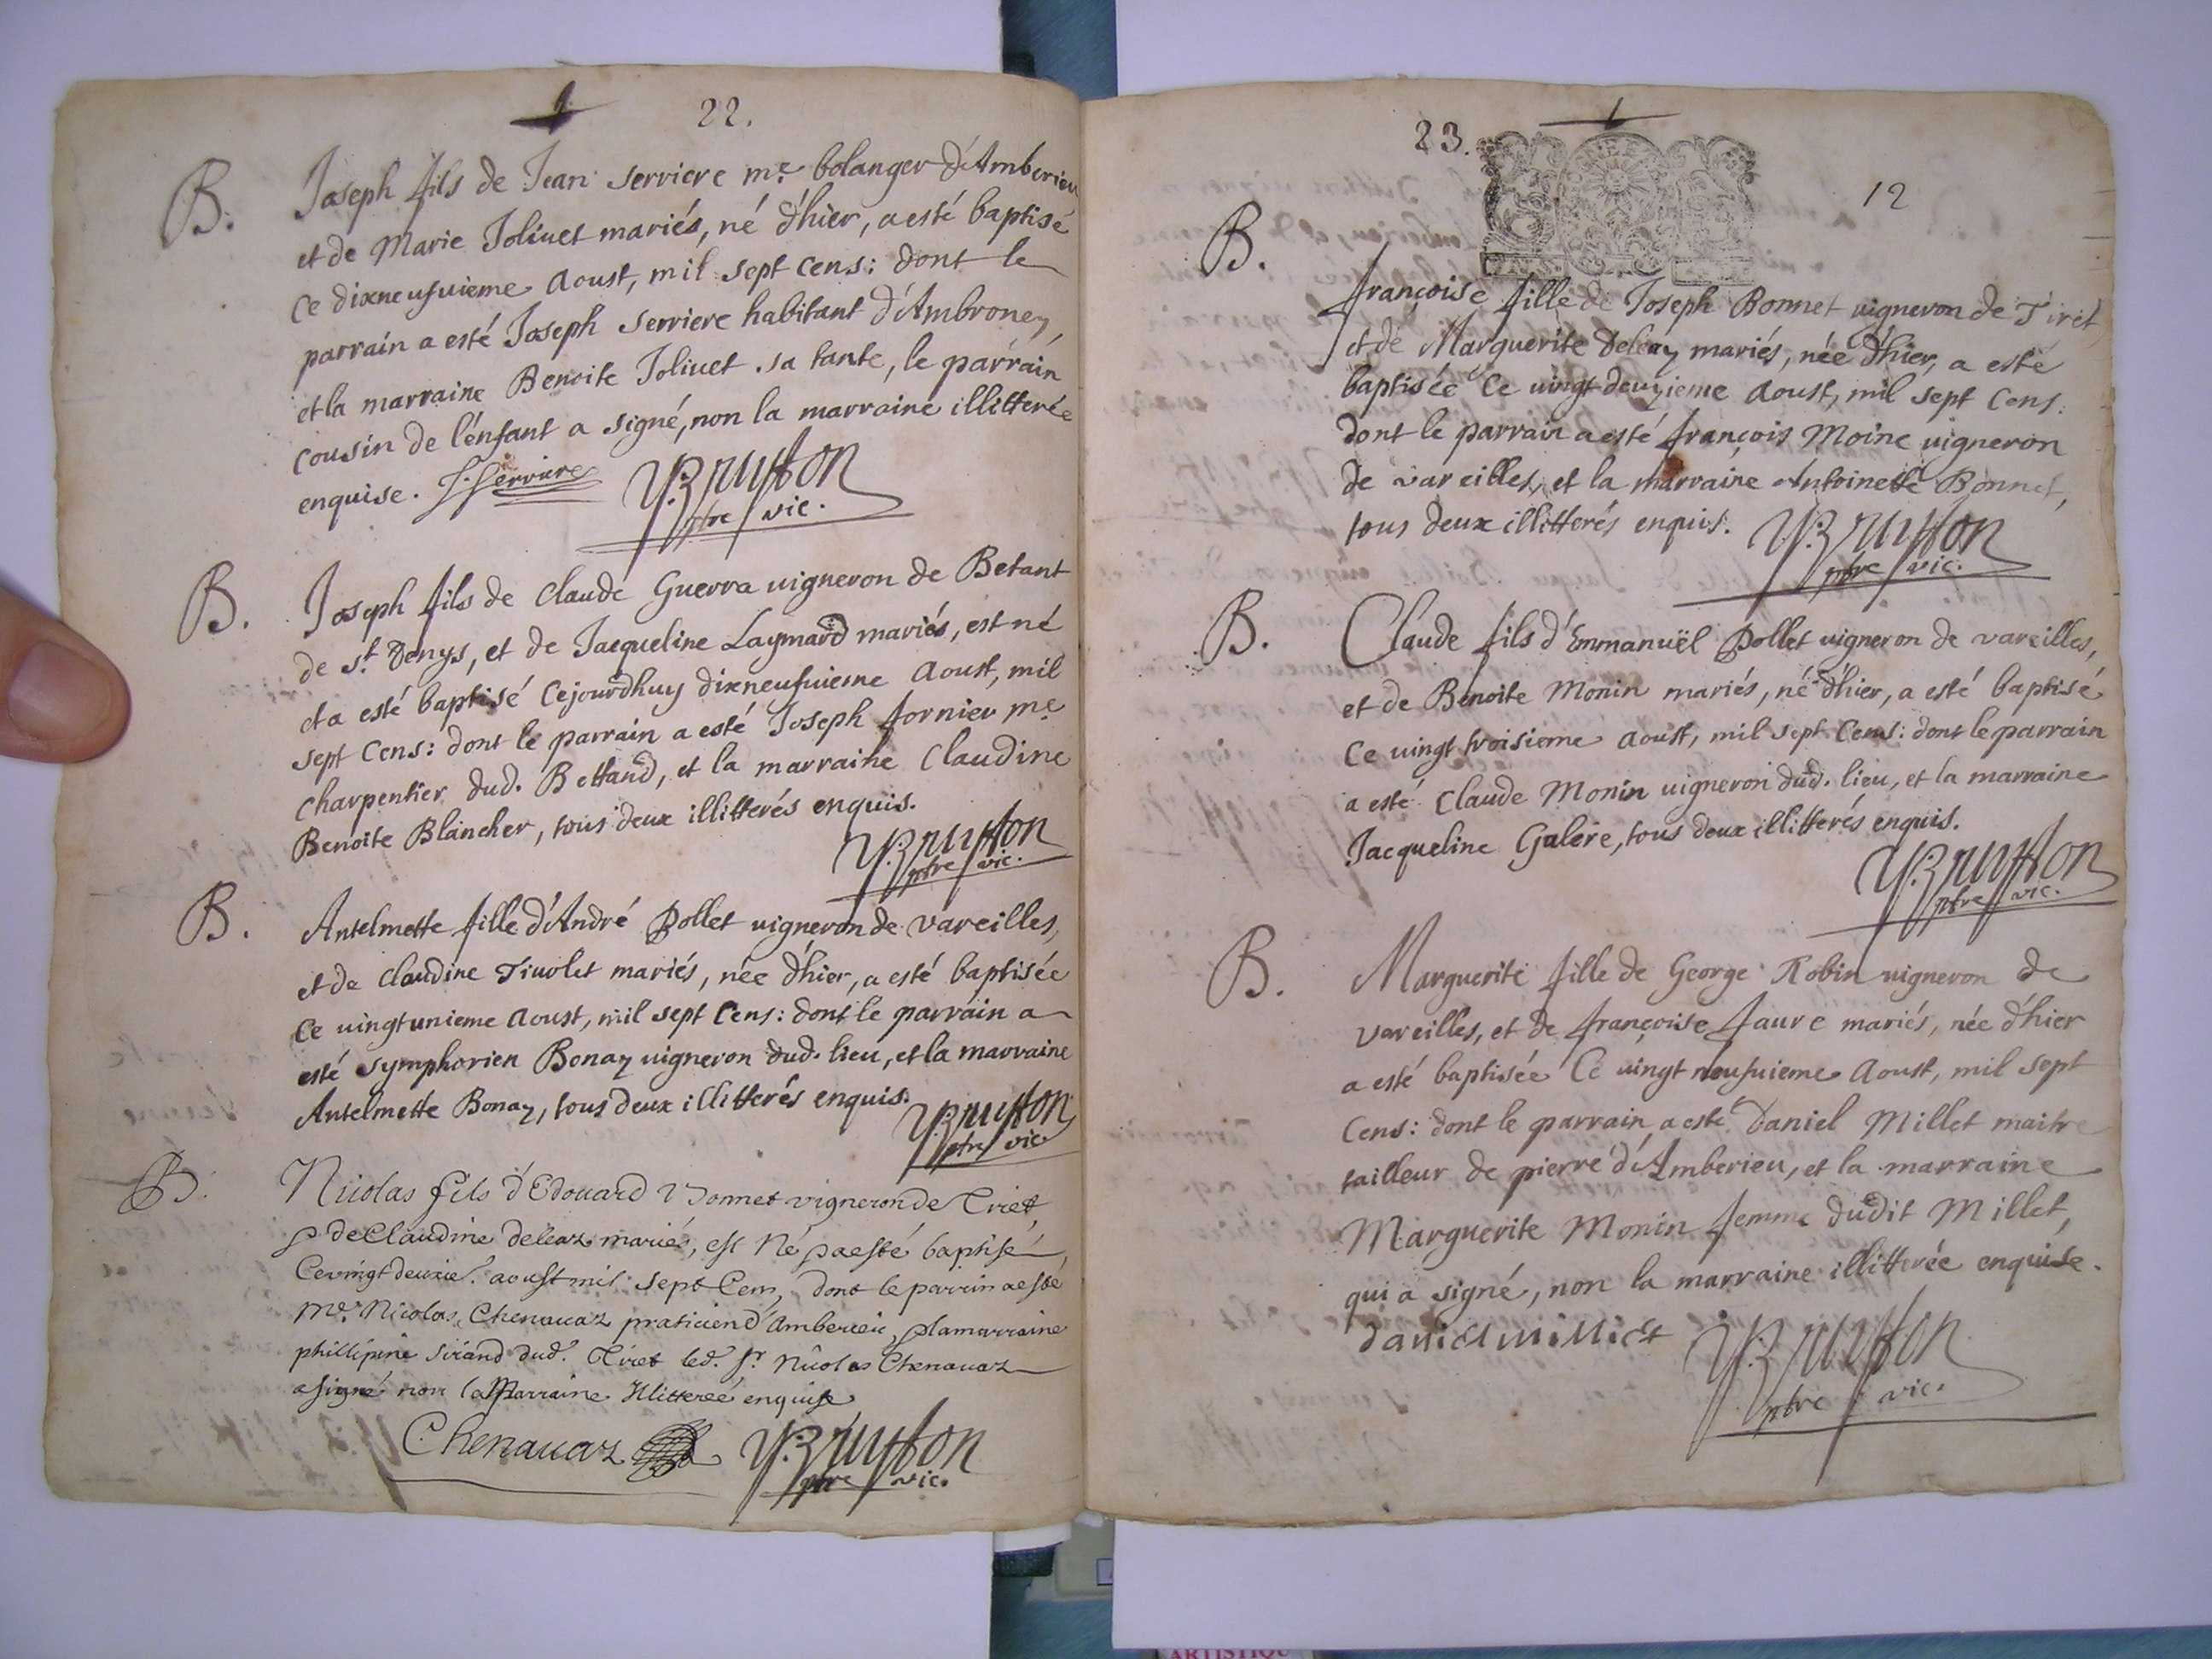 22.
B. Joseph fils de Jean Serriere mᵉ bolanger d'Amberieu
et de Marie Joliuet mariés, né d'hier, a esté baptisé
ce dixneufuieme Aoust, mil sept cens: dont le
parrain a esté Joseph Serriere habitant d'Ambroney,
et la marraine Benoite Joliuet sa tante, le parrain
cousin de l'enfant a signé, non la marraine illitterée
enquise. J. Serriere
YBruyson
ptre vic.
B. Joseph fils de Claude Guerra uigneron de Betant
de St Denys, et de Jacqueline Laymard mariés, est né
et a esté baptisé cejourdhuy dixneufuieme Aoust, mil
sept cens: dont le parrain a esté Joseph fornier mᵉ
charpentier dud. Bettand, et la marraine Claudine
Benoite Blancher, tous deux illitterés enquis.
YBruyson
ptre vic.
B. Antelmette fille d'André Pollet uigneron de Vareilles,
et de Claudine Tiuolet mariés, née d'hier, a esté baptisée
ce uingtunieme Aoust, mil sept cens: dont le parrain a
esté Symphorien Bonaz uigneron dud. lieu, et la marraine
Antelmette Bonaz, tous deux illitterés enquis.
YBruyson
ptre vic.
B. Nicolas fils d'Edouard Bonnet vigneron de Tiret
& de Claudine deleaz mariés, est Né & a esté baptisé
Ce vingt deuxie. aoust mil sept Cens, dont le parrin a esté
Mᵉ Nicolas Chenauaz praticien d'Amberieu, & la marraine
phillipine Sirand dud. Tiret led. Sr. Nicolas Chenauaz
a signé non la Marraine Illitereé enquise
Chenauaz
YBruyson
ptre vic.
23.
12
B. françoise fille de Joseph Bonnet uigneron de Tiret,
et de Marguerite Deleaz mariés, née d'hier, a esté
baptisée ce uingt deuzieme Aoust, mil sept cens.
dont le parrain a esté françois Moine uigneron
de vareilles, et la marraine Antoinette Bonnet,
tous deux illitterés enquis.
YBruyson
ptre vic.
B. Claude fils d'Emmanuël Pollet uigneron de vareilles,
et de Benoite Monin mariés, né d'hier, a esté baptisé
ce uingt troisieme Aoust, mil sept cens: dont le parrain
a esté Claude Monin uigneron dud. lieu, et la marraine
Jacqueline Galere, tous deux illitterés enquis.
YBruyson
ptre vic.
B. Marguerite fille de George Robin uigneron de
vareilles, et de françoise faure mariés, née d'hier
a esté baptisée ce uingt neufuieme Aoust, mil sept
cens: dont le parrain a esté Daniel Millet maitre
tailleur de pierre d'Amberieu, et la marraine
Marguerite Monin femme dudit Millet,
qui a signé, non la marraine illitterée enquise.
daniel Milliet
YBruyson
ptre vic.
ARTISTIQU